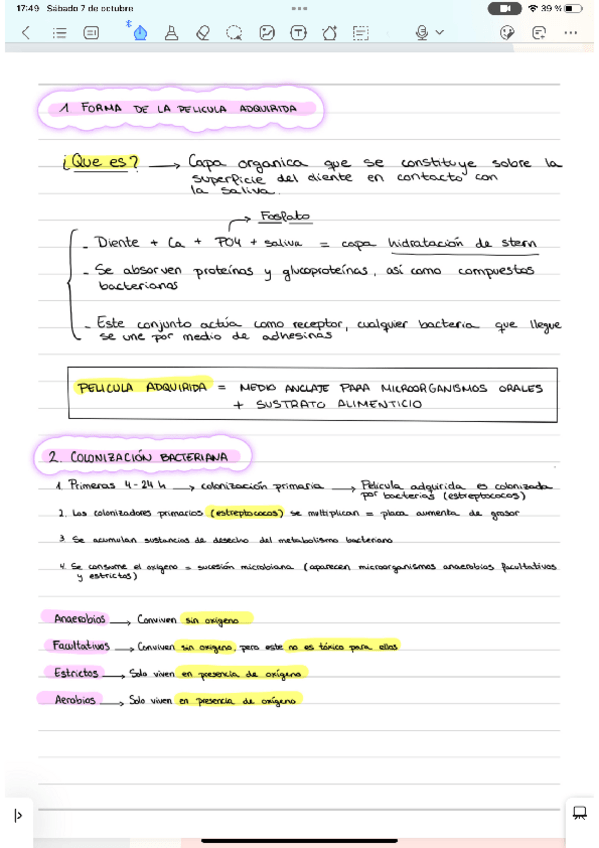 17:49 Sábado 7 de octubre
39 %
1 FORMA DE LA PELICULA ADQUIRIDA
¿Que es? → Capa organica que se constituye sobre la
superficie del diente en contacto con
la saliva.
→ Fosfato
- Diente + Ca + PO4 + saliva = capa hidratación de stern
- Se absorven proteínas y glucoproteínas, así como compuestos
bacterianos
- Este conjunto actúa como receptor, cualquier bacteria que llegue
se une por medio de adhesinas
PELICULA ADQUIRIDA = MEDIO ANCLAJE PARA MICROORGANISMOS ORALES
+ SUSTRATO ALIMENTICIO
2. COLONIZACIÓN BACTERIANA
1. Primeras 4-24 h → colonización primaria → Película adquirida es colonizada
por bacterias (estreptococos)
2. Los colonizadores primarios (estreptococos) se multiplican = placa aumenta de grosor
3 Se acumulan sustancias de desecho del metabolismo bacteriano
4. Se consume el oxígeno = sucesión microbiana (aparecen microorganismos anaerobios facultativos
y estrictos)
Anaerobios → Conviven sin oxígeno
Facultativos → Conviven sin oxígeno, pero este no es tóxico para ellos
Estrictos → Solo viven en presencia de oxígeno
Aerobios → Solo viven en presencia de oxígeno